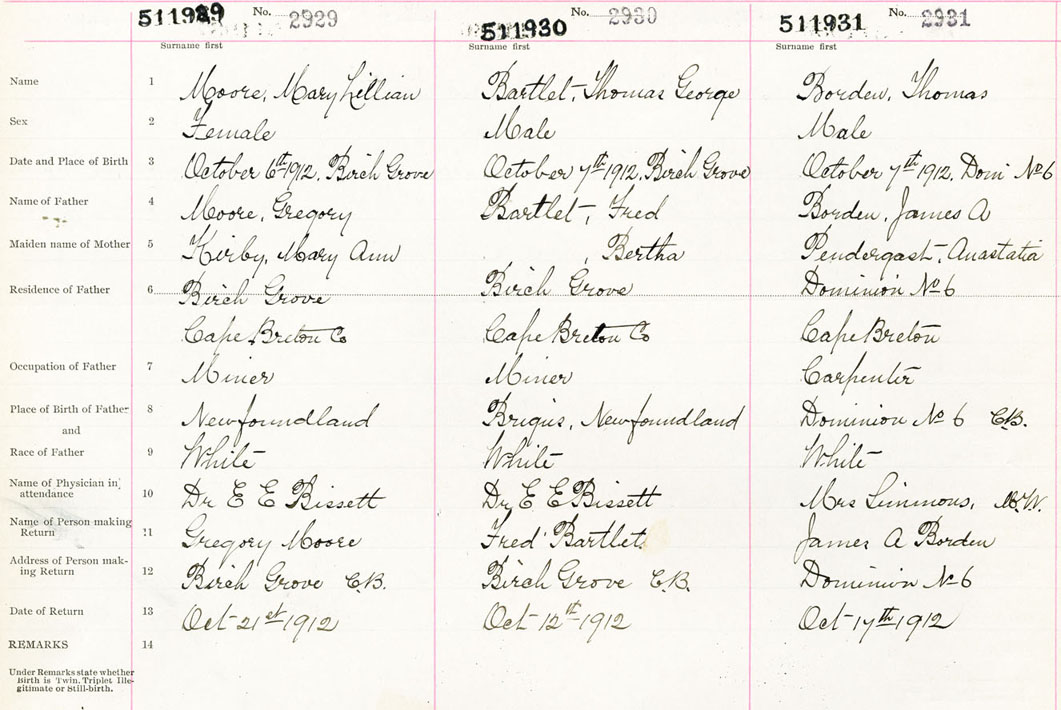 511929 No. 2929 511930 No. 2930 511931 No. 2931
Surname first Surname first Surname first
Name 1 Moore, Mary Lillian Bartlet, Thomas George Borden, Thomas
Sex 2 Female Male Male
Date and Place of Birth 3 October 6th 1912, Birch Grove October 7th 1912, Birch Grove October 7th 1912, Dom No 6
Name of Father 4 Moore, Gregory Bartlet, Fred Borden, James A
Maiden name of Mother 5 Kirby, Mary Ann , Bertha Pendergast, Anastatia
Residence of Father 6 Birch Grove Birch Grove Dominion No 6
Cape Breton Co Cape Breton Co Cape Breton
Occupation of Father 7 Miner Miner Carpenter
Place of Birth of Father 8 Newfoundland Brigus, Newfoundland Dominion No 6 C.B.
and
Race of Father 9 White White White
Name of Physician in
attendance 10 Dr E E Bissett Dr E E Bissett Mrs Simmons, M.W.
Name of Person making
Return 11 Gregory Moore Fred Bartlet James A Borden
Address of Person mak-
ing Return 12 Birch Grove C.B. Birch Grove C.B. Dominion No 6
Date of Return 13 Oct 21st 1912 Oct 12th 1912 Oct 17th 1912
REMARKS 14
Under Remarks state whether
Birth is Twin, Triplet Ille-
gitimate or Still-birth.